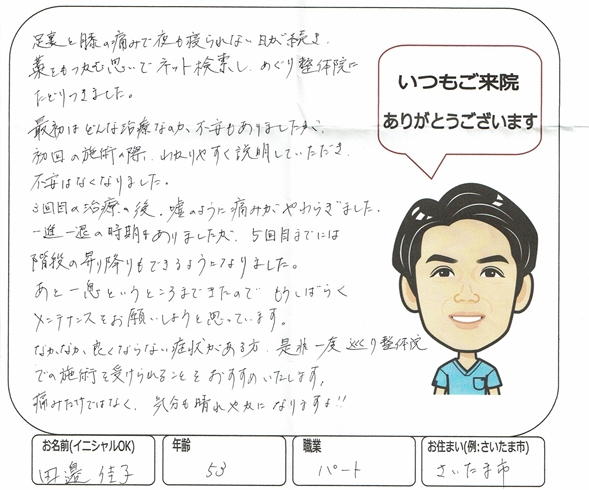 足裏と膝の痛みで夜も寝られない日が続き、
藁をもつかむ思いでネット検索し、めぐり整体院に
たどりつきました。
最初はどんな治療なのか、不安もありましたが、
初回の施術の際、わかりやすく説明していただき、
不安はなくなりました。
3回目の治療の後、嘘のように痛みがやわらぎました。
一進一退の時期もありましたが、5回目までには
階段の昇り降りもできるようになりました。
あと一息というところまできたので もうしばらく
メンテナンスをお願いしようと思っています。
なかなか良くならない症状がある方、是非一度 めぐり整体院
での施術を受けられることをおすすめいたします。
痛みだけではなく、気分も晴れやかになりますよ!!
いつもご来院
ありがとうございます
お名前(イニシャルOK)
田邉 佳子
年齢
53
職業
パート
お住まい(例:さいたま市)
さいたま市